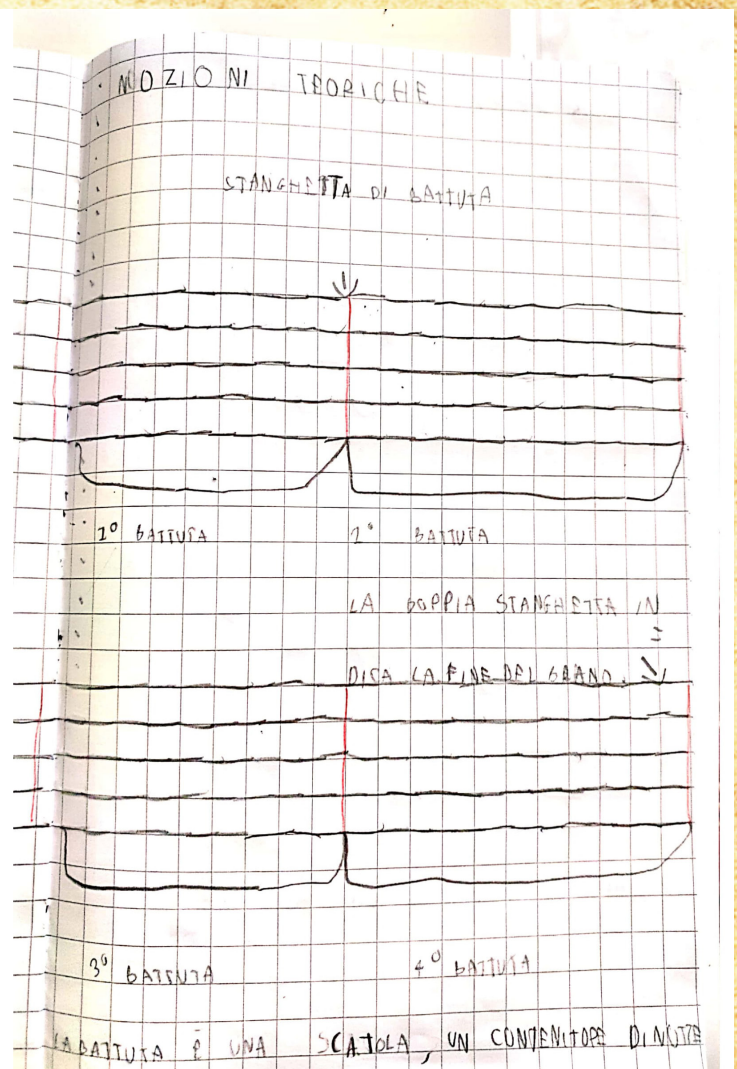 NOZIONI TEORICHE
STANGHETTA DI BATTUTA
1° BATTUTA 2° BATTUTA
LA DOPPIA STANGHETTA IN
=
DICA LA FINE DEL BRANO.
3° BATTUTA 4° BATTUTA
LA BATTUTA È UNA SCATOLA, UN CONTENITORE DI NOTE